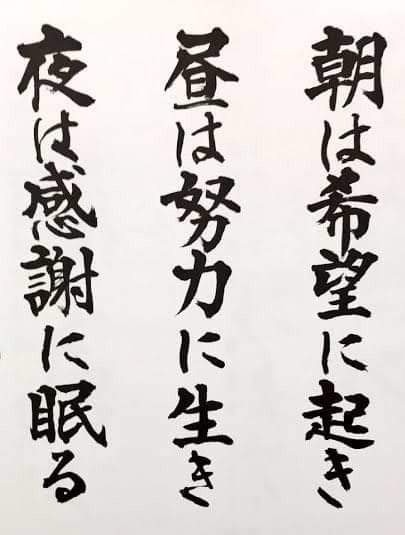 朝は希望に起き
昼は努力に生き
夜は感謝に眠る